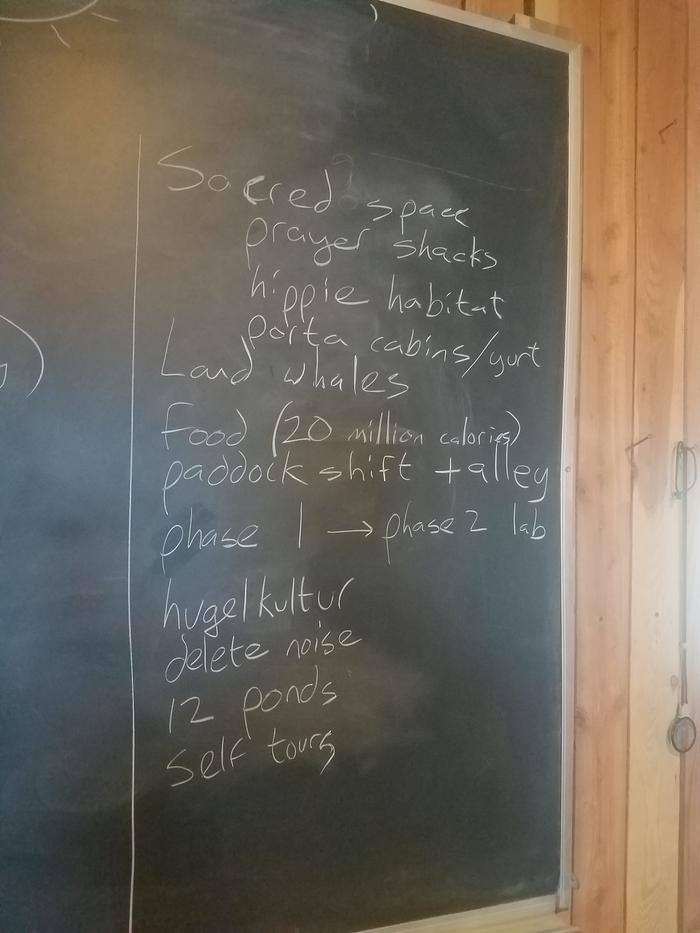 Sacred space
prayer shacks
hippie habitat
porta cabins/yurt
Land whales
Food (20 million calories)
paddock shift + alley
phase 1 → phase 2 lab
hugelkultur
delete noise
12 ponds
Self tours